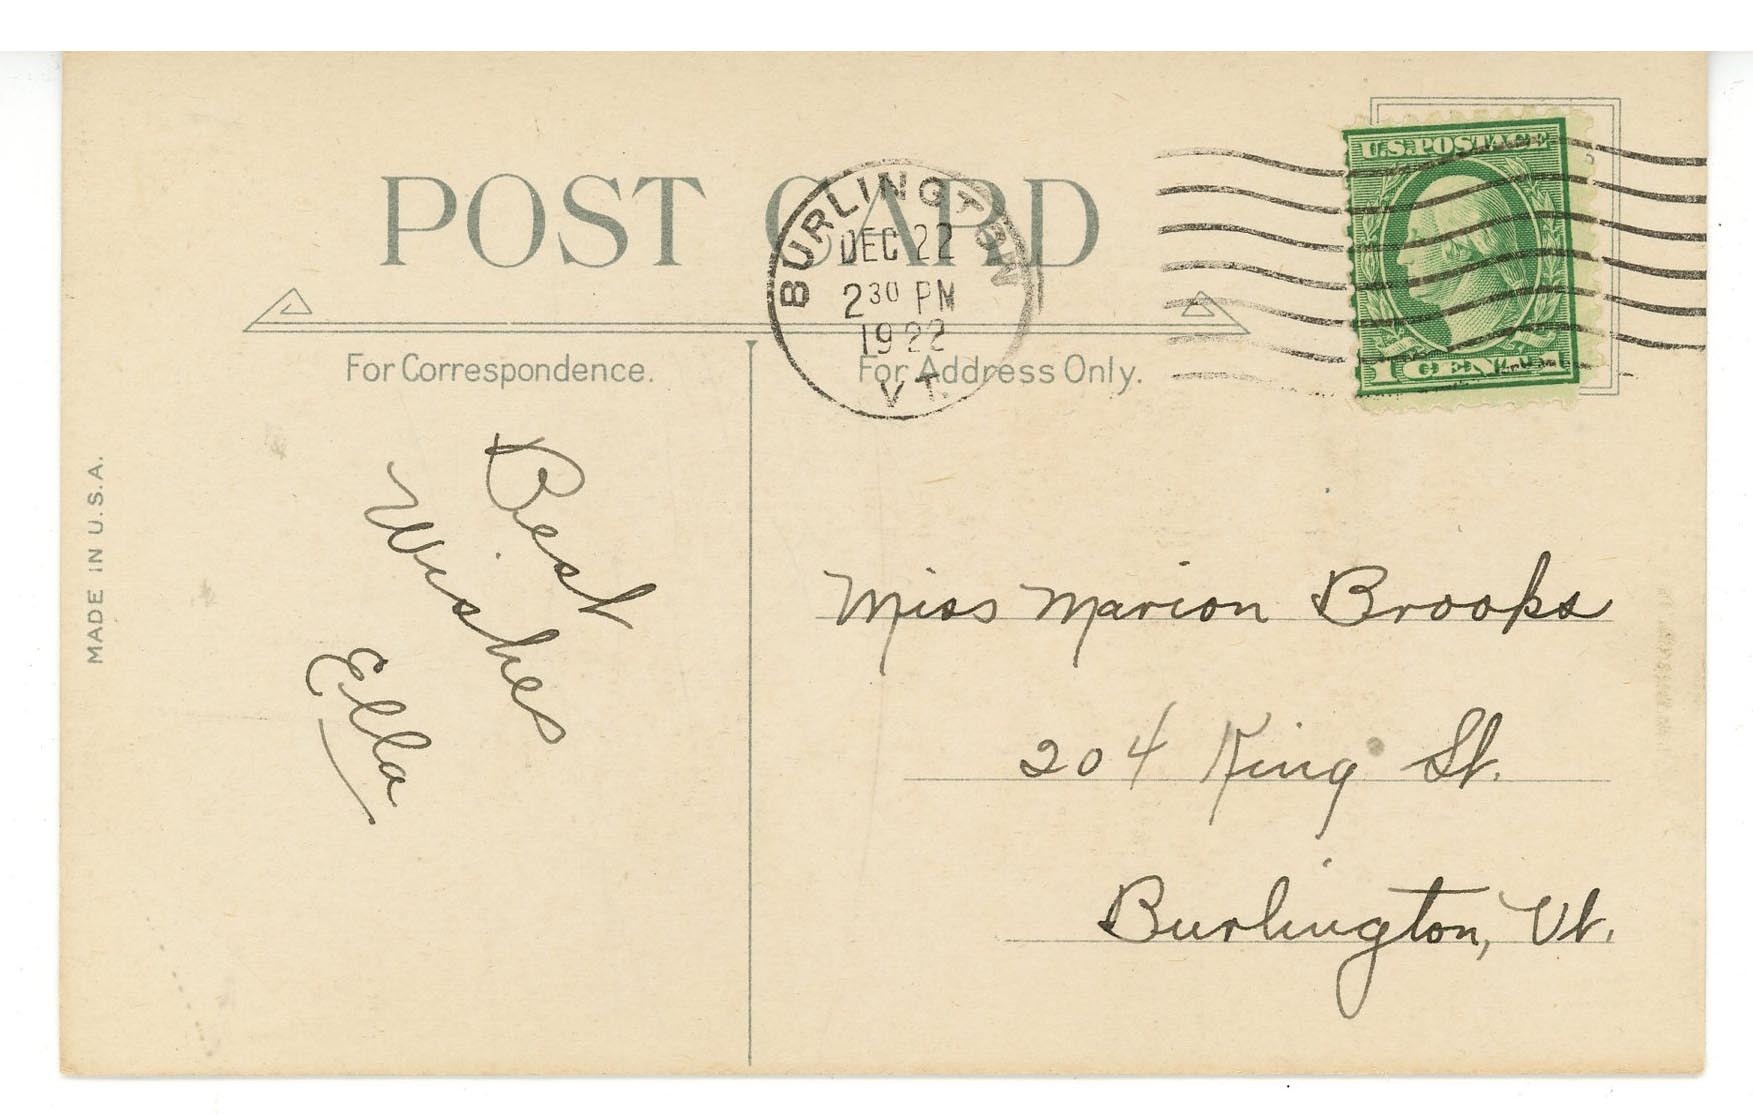 POST CARD
BURLINGTON
DEC 22
2 30 PM
1922
VT.
U.S. POSTAGE
1 CENT 1
For Correspondence.
For Address Only.
MADE IN U.S.A.
Best
Wishes
Ella
Miss Marion Brooks
204 King St.
Burlington, Vt.